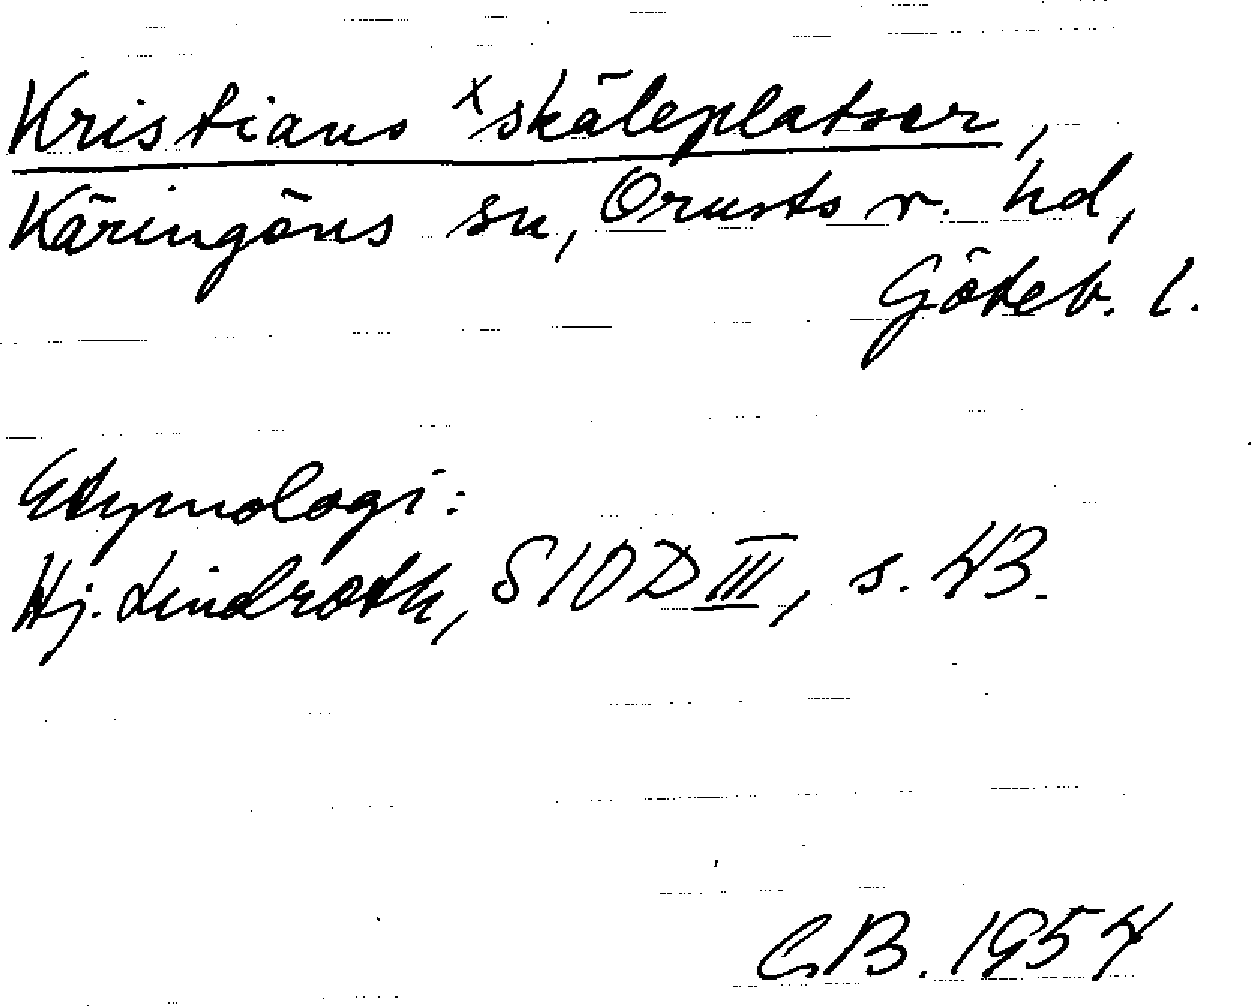 Kristians ˣskäleplatser,
Käringöns sn, Orusts v. hd,
Göteb. l.
Etymologi:
Hj. Lindroth, SIOD III, s. 43.
C.B. 1954